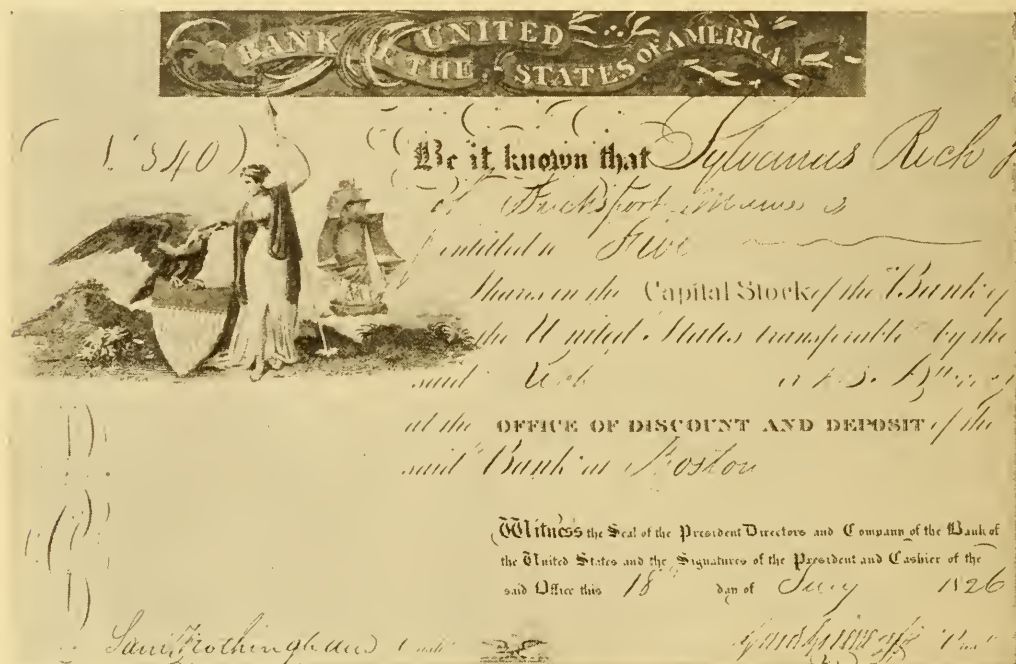 BANK OF THE UNITED STATES OF AMERICA
540)
Be it known that Sylvanus Rich Jr
of Bucksport, Maine is
entitled to Five
Shares in the Capital Stock of the Bank of
the United States transferable by the
said Rich
at the OFFICE OF DISCOUNT AND DEPOSIT of the
said Bank at Boston
Witness the Seal of the President Directors and Company of the Bank of
the United States and the Signatures of the President and Cashier of the
said Office this 18 day of July 1826
Sam Frothingham Cash